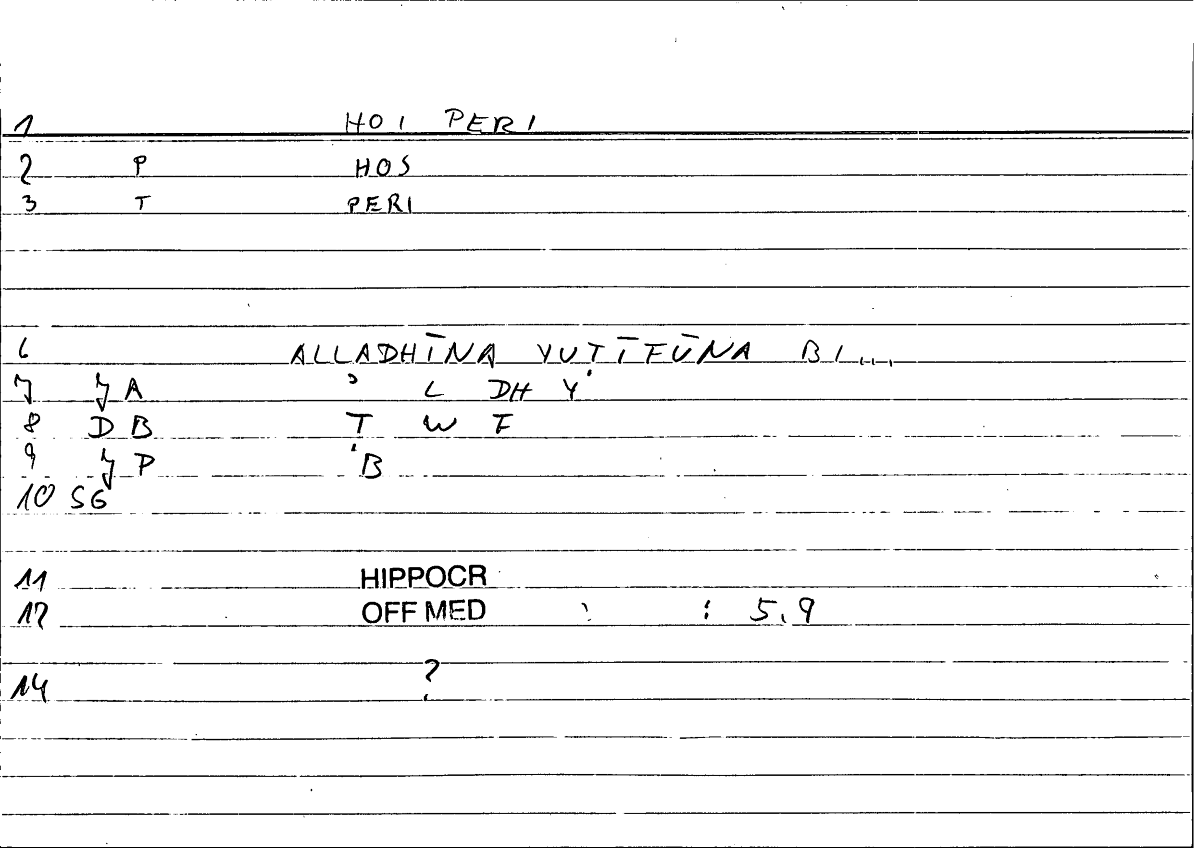 1 HOI PERI
2 P HOS
3 T PERI
6 ALLADHĪNA YUṬĪFŪNA BI...
7 JA ʾ L DH Yʾ
8 DB Ṭ W F
9 JP ʿB
10 SG
11 HIPPOCR
12 OFF MED : : 5,9
14 ?